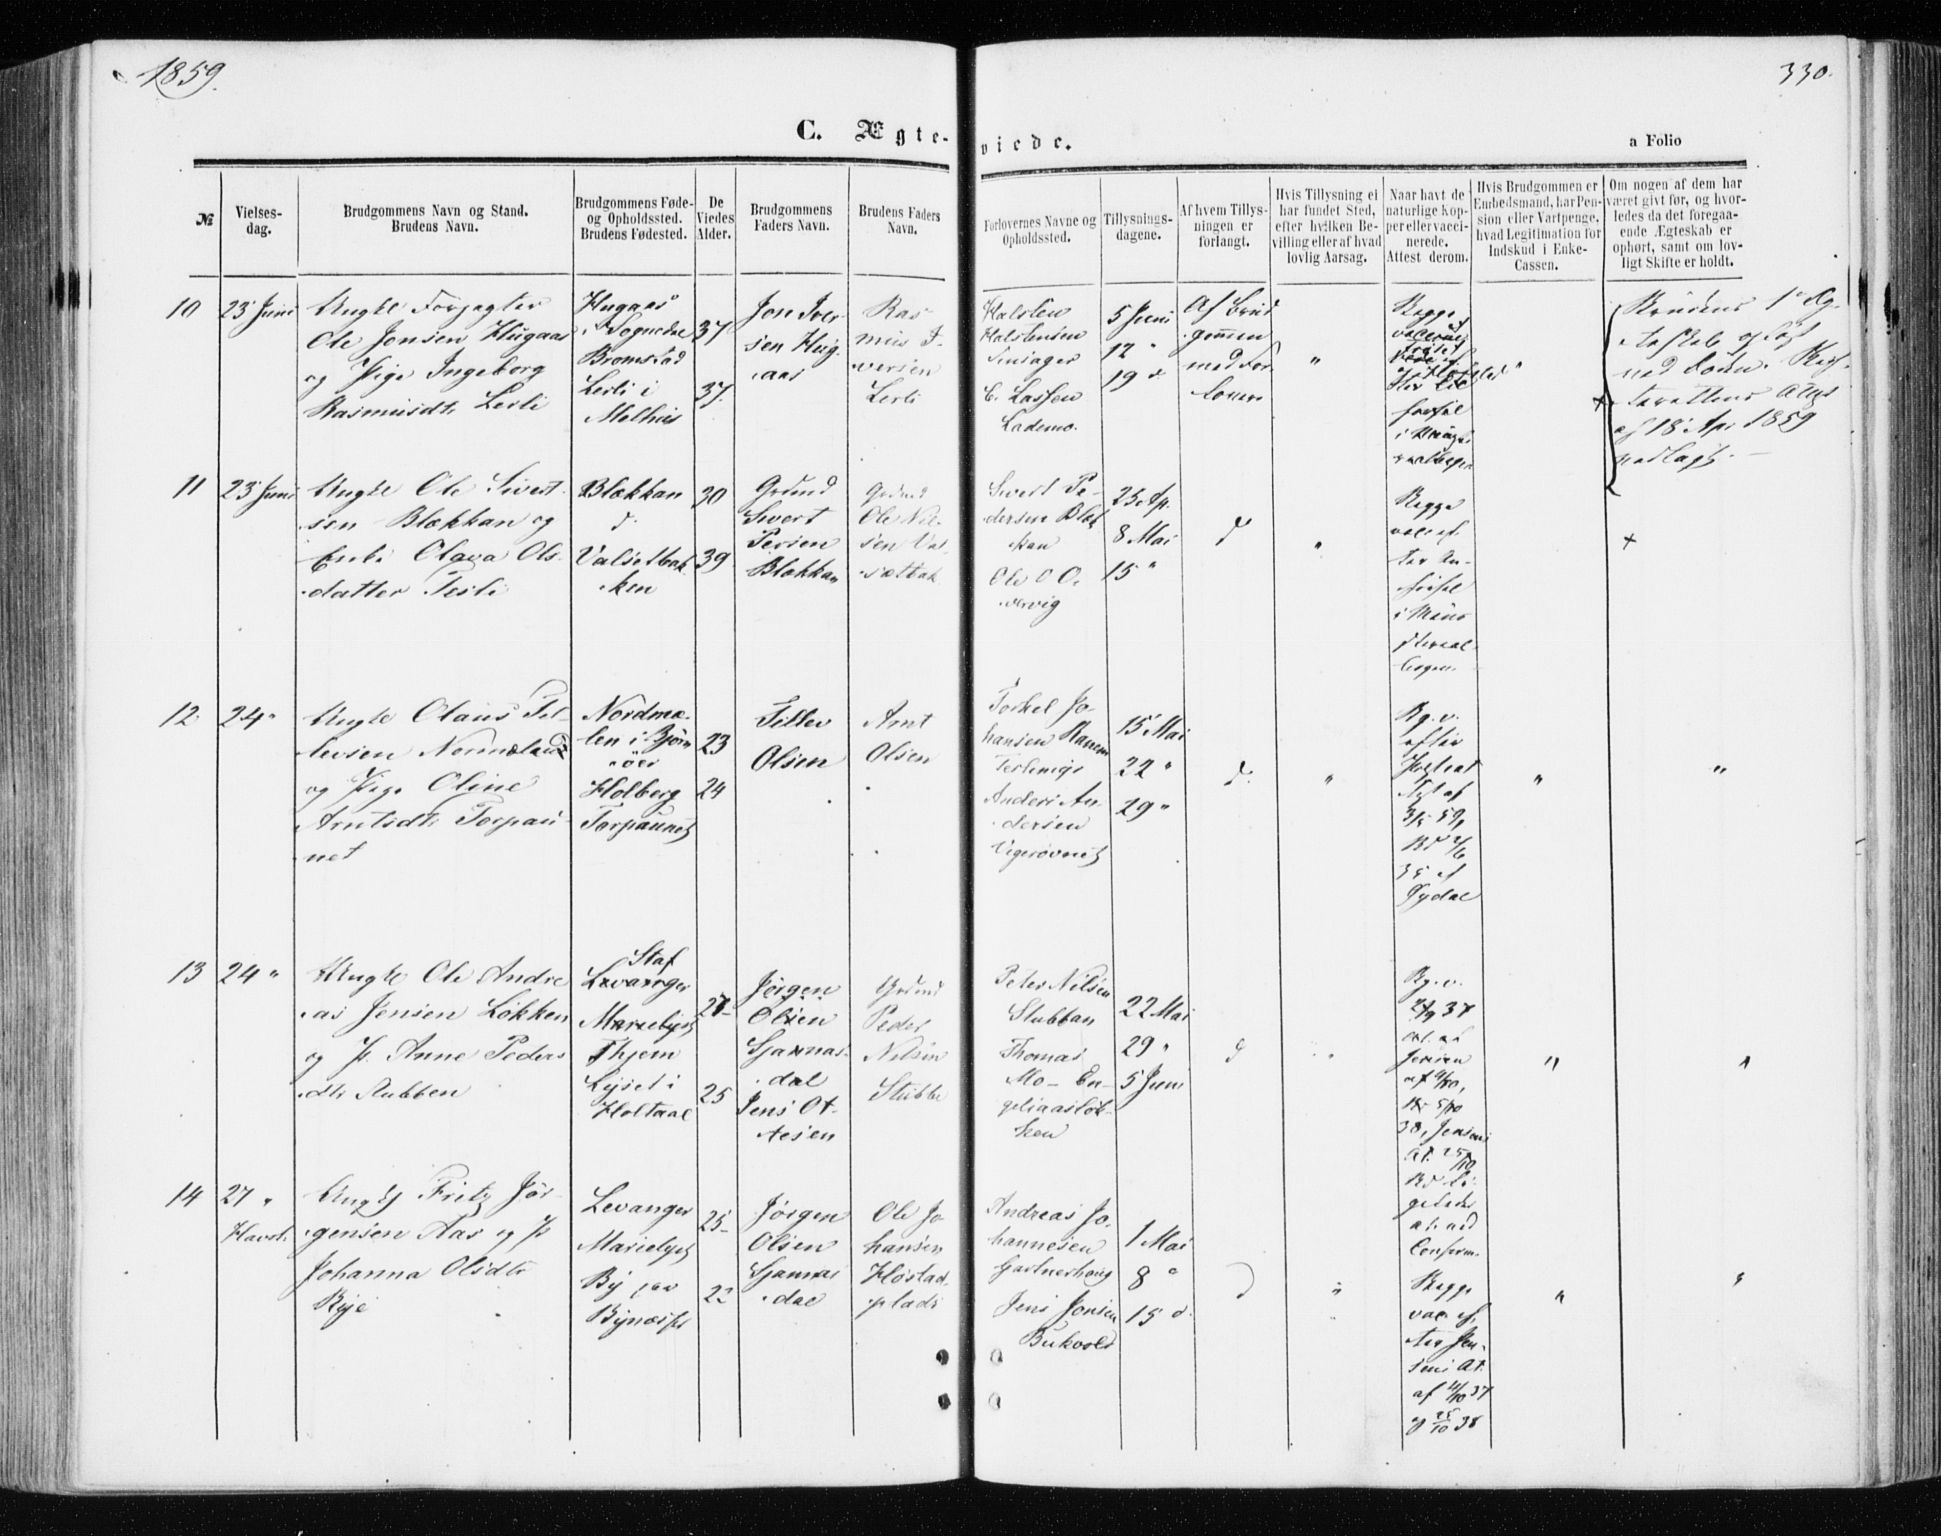 1859.
330.
C. Ægte-
viede.
a Folio
№
Vielses-
dag.
Brudgommens Navn og Stand.
Brudens Navn.
Brudgommens Føde-
og Opholdssted.
Brudens Fødested.
De
Viedes
Alder.
Brudgommens
Faders Navn.
Brudens Faders
Navn.
Forlovernes Navne og
Opholdssted.
Tillysnings-
dagene.
Af hvem Tillys-
ningen er
forlangt.
Hvis Tillysning ei
har fundet Sted,
efter hvilken Be-
villing eller af hvad
lovlig Aarsag.
Naar havt de
naturlige Kop-
per eller vacci-
nerede.
Attest derom.
Hvis Brudgommen er
Embedsmand, har Pen-
sion eller Vartpenge,
hvad Legitimation for
Indskud i Enke-
Cassen.
Om nogen af dem har
været givt før, og hvor-
ledes da det foregaa-
ende Ægteskab er
ophørt, samt om lov-
ligt Skifte er holdt.
10
23 Juni
Ungkl Forpagter
Ole Jonsen Hugaas
og Pige Ingeborg
Rasmusdtr Lerli
Hugaas
i Sognedal
Bromstad
Lerli i
Melhus
37
37
Jon Iver-
sen Hug-
aas
Ras-
mus I-
versen
Lerli
Halsten
Halstensen
E. Lassen
Lademo.
5 Juni
12 "
19 d.
Af Brud
gommen
med For
lover
"
Begge
"
Brudens 1e Æg-
teskab opløst
ved Døden.
af 18 Apr 1859
11
23 Juni
Ungkl Ole Sivert-
sen Blækkan og
Enke Olava Ols-
datter Tesli
Blækkan
d.
Valsetbak
ken
30
39
Grdmd
Sivert
Persen
Blækkan
Grdmd
Ole Nil-
sen Val-
sætbak
Sivert Pe-
dersen Blæk
kan
Ole O O.
25 Ap.
8 Mai
15 "
d
"
Begge
vac. ef-
ter
+
12
24 "
Ungkl Olaus Tel-
lefsen Normeland
og Pige Oline
Arntsdtr Torpau
net
Nordmæ-
len i Bjørn
öer
Holberg
Torpaunet
23
24
Tellev
Olsen
Arnt
Olsen
Torkel Jo-
hansen
Anders An-
dersen
Ugerøvnet
15 Mai
22 "
29 "
d.
"
Bg. v.
efter
35 af
Tydal
"
"
13
24 "
Ungkl Ole Andre
as Jensen Løkken
og P. Anne Peders
dtr Stubben
Levanger
Marielyst
Lyset i
Holtaal
27
25
Jørgen
Olsen
Sjannas-
dal
Jens Ot-
tesen
Grdmd
Peder
Nilsen
Stubbe
Peter Nilsen
Stubban
Thomas
Mo - En-
geliaasløk-
ken
22 Mai
29 "
5 Juni
d
"
Bg. v.
"
"
14
27 "
Ungkl Fritz Jør-
gensen Aas og P
Johanna Olsdtr
Rye
Levanger
Marielyst
By paa
Bynæsset
25
22
Jørgen
Olsen
Sjannas
dal
Ole Jo
hansen
Høstad-
plads
Andreas Jo-
hannesen
Gartnerhaug
Jens Jonsen
Bukvold
1 Mai
8 "
15 d.
d
"
Begge
vac. ef-
ter Jen-
sens At.
"
"